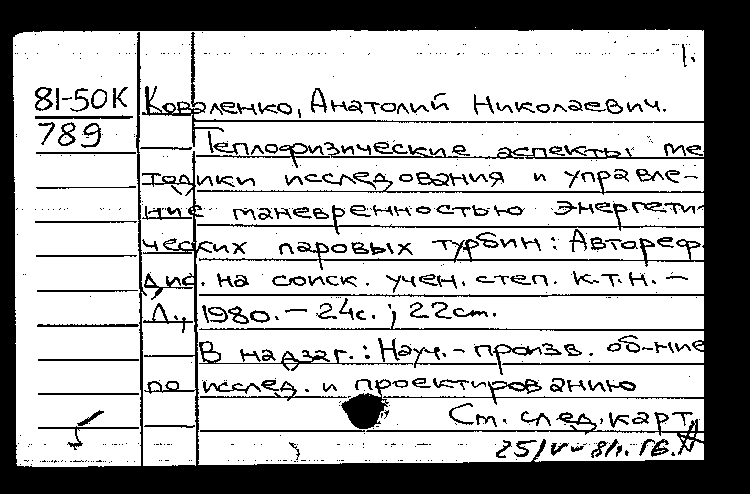 1.
81-50К Коваленко, Анатолий Николаевич.
789 Теплофизические аспекты ме
тодики исследования и управле-
ние маневренностью энергети-
ческих паровых турбин: Автореф.
дис. на соиск. учен. степ. к.т.н. –
Л., 1980. – 24с. ; 22см.
В надзаг.: Науч.-произв. об-ние
по исслед. и проектированию
См. след. карт.
25/V-81г.